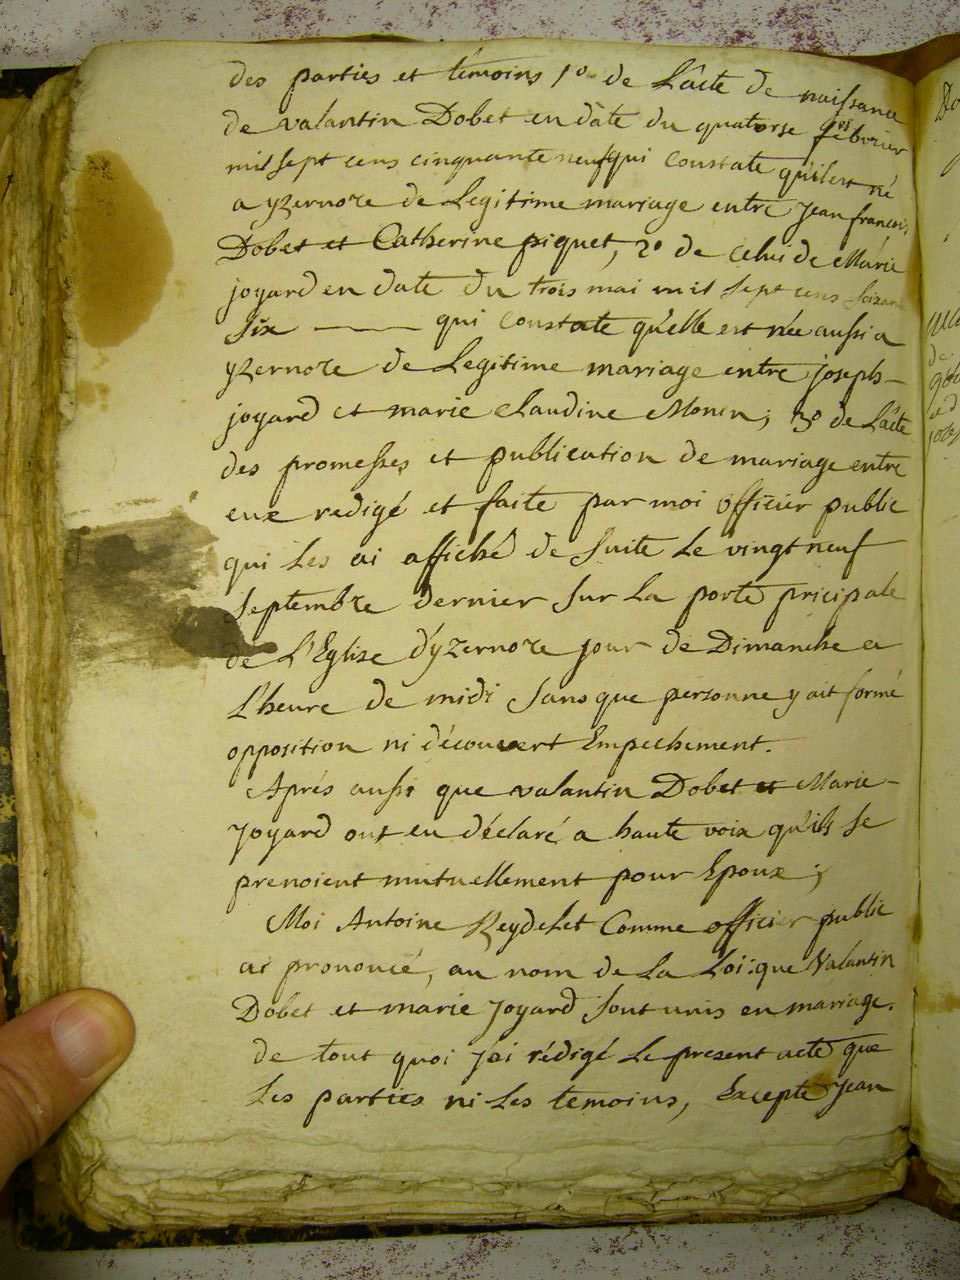 des parties et témoins 1º de L'acte de naissance
de valantin Dobet en date du quatorse février
mil sept cens cinquante neuf qui Constate qu'il est né
a yzernore de Legitime mariage entre jean françois
Dobet et Catherine piquet, 2º de Celui de Marie
joyard en date du trois mai mil sept cens soixante
six ——— qui Constate qu'elle est née aussi a
yzernore de Legitime mariage entre joseph -
joyard et marie Claudine Monin; 3º de L'acte
des promesses et publication de mariage entre
eux redigé et faite par moi officier public
qui les ai affiché de suite Le vingt neuf
septembre dernier sur La porte pricipale
de L'Eglise d'yzernore jour de Dimanche a
L'heure de midi sans que personne y ait formé
opposition ni découvert Empechement.
Aprés aussi que valantin Dobet et Marie -
Joyard ont eu déclaré a haute voix qu'ils se
prenoient mutuellement pour Epoux ;
Moi Antoine Reydelet Comme officier public
ai prononcé, au nom de La Loi: que Valantin
Dobet et marie Joyard sont unis en mariage.
de tout quoi j'ai rédigé Le present acte que
Les parties ni Les temoins, Excepté Jean